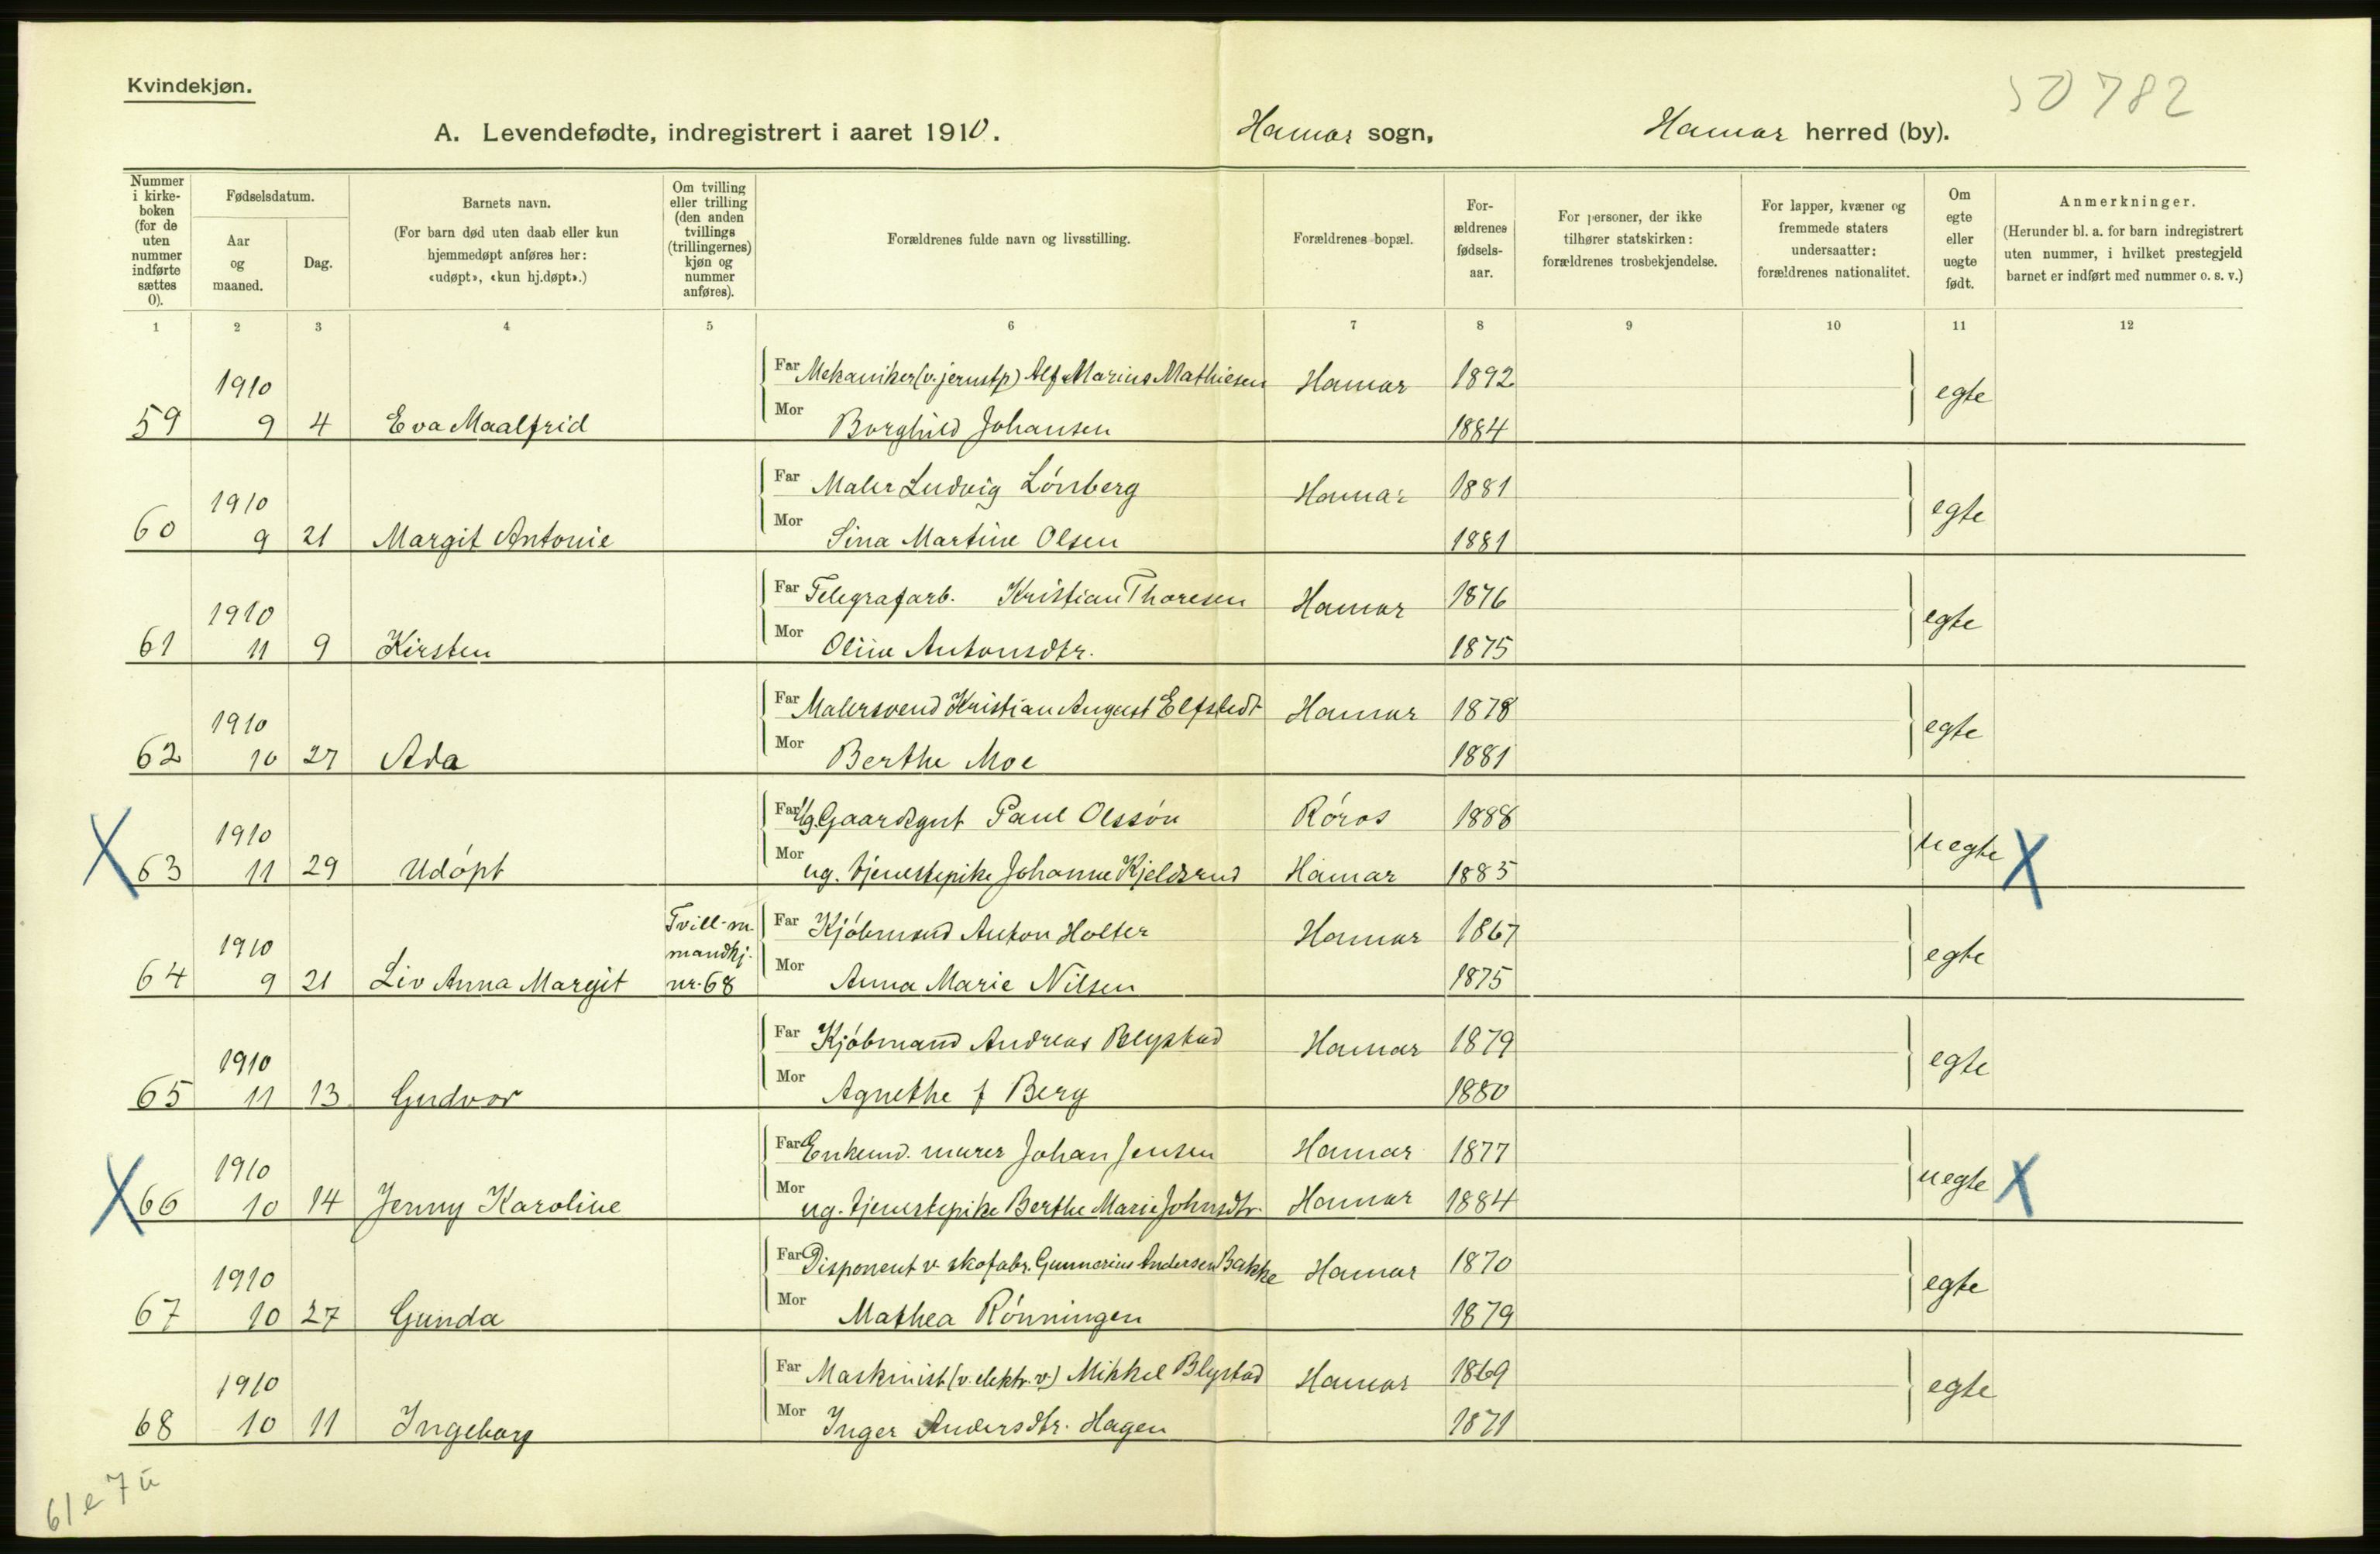 Kvindekjøn.
50782
A. Levendefødte, indregistrert i aaret 1910. Hamar sogn, Hamar herred (by).
Nummer i kirkeboken (for de uten nummer indførte sættes 0).
Fødselsdatum.
Aar og maaned.
Dag.
Barnets navn.
(For barn død uten daab eller kun hjemmedøpt anføres her: «udøpt», «kun hj.døpt».)
Om tvilling eller trilling (den anden tvillings (trillingernes) kjøn og nummer anføres).
Forældrenes fulde navn og livsstilling.
Forældrenes bopæl.
Forældrenes fødselsaar.
For personer, der ikke tilhører statskirken: forældrenes trosbekjendelse.
For lapper, kvæner og fremmede staters undersaatter: forældrenes nationalitet.
Om egte eller uegte født.
Anmerkninger.
(Herunder bl. a. for barn indregistrert uten nummer, i hvilket prestegjeld barnet er indført med nummer o. s. v.)
1 2 3 4 5 6 7 8 9 10 11 12
1910 Far Mekaniker (v. jernstøp) Alf Marius Mathiesen Hamar 1892 egte
59 9 4 Eva Maalfrid Mor Borghild Johansen 1884
1910 Far Maler Ludvig Lönberg Hamar 1881 egte
60 9 21 Margit Antonie Mor Sina Martine Olsen 1881
1910 Far Telegrafarb. Kristian Thoresen Hamar 1876 egte
61 11 9 Kirsten Mor Oline Antonsdtr. 1875
1910 Far Malersvend Kristian August Elfstedt Hamar 1878 egte
62 10 27 Ada Mor Berthe Moe 1881
1910 Far Ug. Gaardsgut Paul Olssön Röros 1888 uegte X
X 63 11 29 Udöpt Mor ug. tjenestepike Johanne Kjeldsrud Hamar 1885
1910 Tvill. m. mandkj. nr. 68 Far Kjöbmand Anton Holter Hamar 1867 egte
64 9 21 Liv Anna Margit Mor Anna Marie Nilsen 1875
1910 Far Kjöbmand Andreas Blystad Hamar 1879 egte
65 11 13 Gudvor Mor Agnethe f Berg 1880
1910 Far Enkemd. murer Johan Jensen Hamar 1877 uegte X
X 66 10 14 Jenny Karoline Mor ug. tjenestepike Berthe Marie Johnsdtr. Hamar 1884
1910 Far Disponent v skofabr. Gunnerius Andersen Bakke Hamar 1870 egte
67 10 27 Gunda Mor Mathea Rönningen 1879
1910 Far Maskinist (v. elektr. v.) Mikkel Blystad Hamar 1869 egte
68 10 11 Ingeborg Mor Inger Andersdtr. Hagen 1871
61 e 7 u